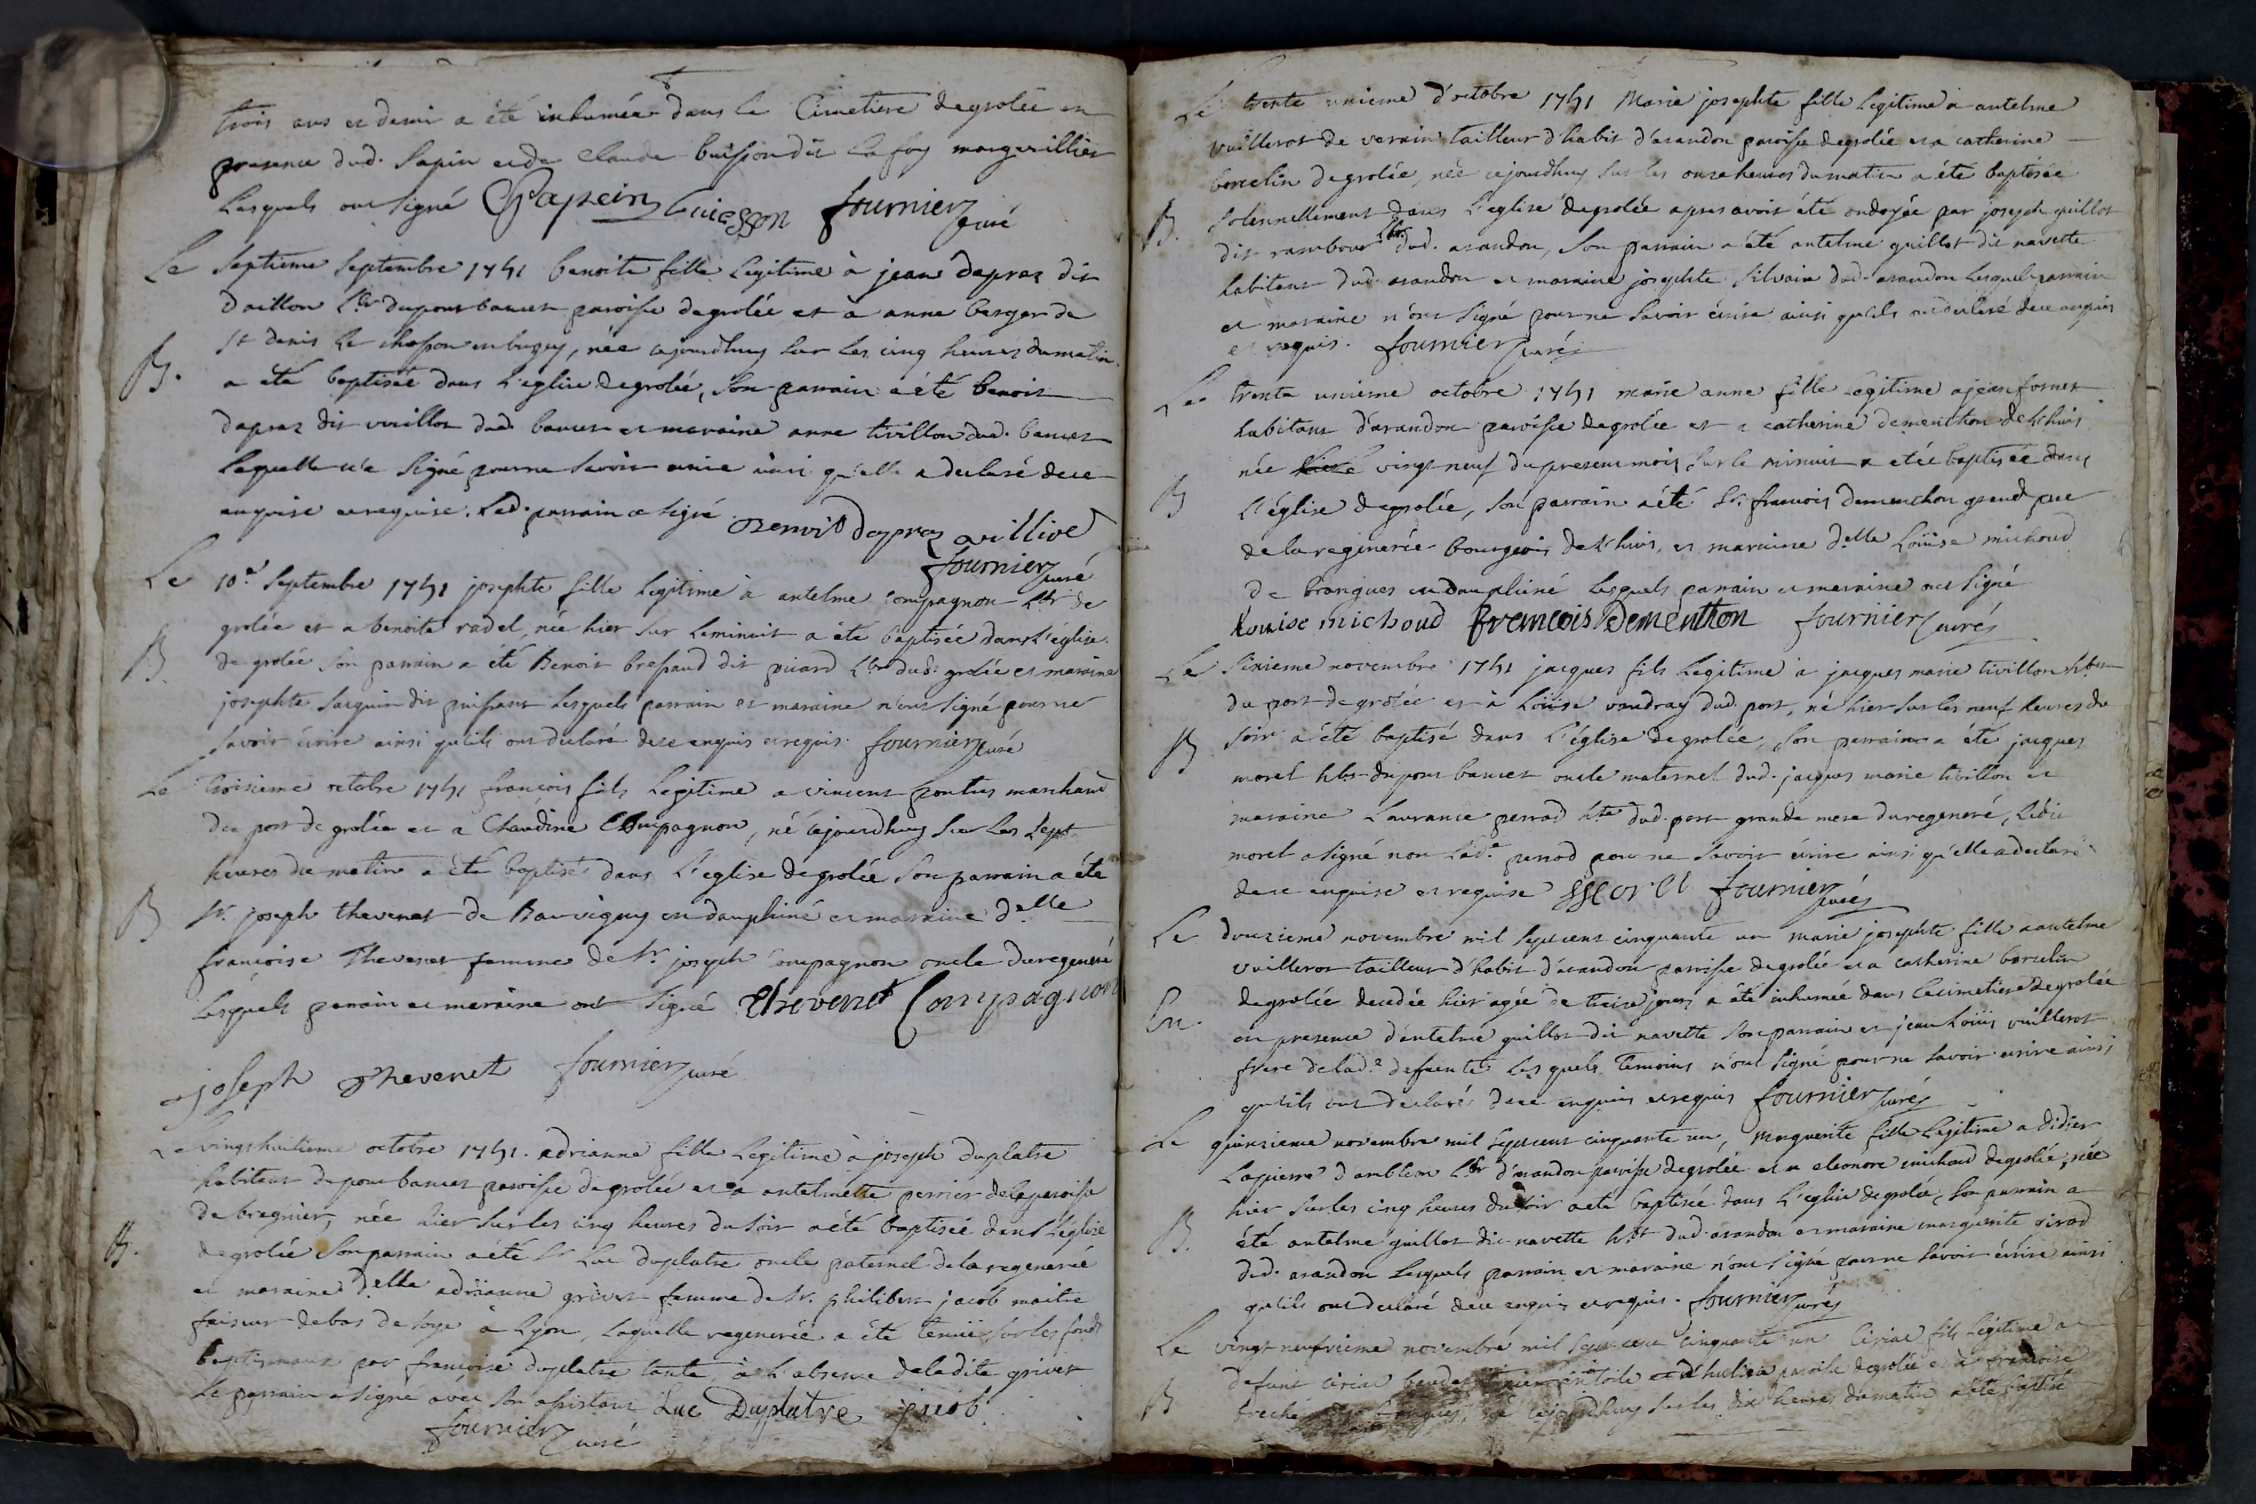 trois ans et demi a été inhumée dans le Cimetiere de grolée en
presence dud. Sapin et de Claude buisson dit la foy marguillier
lesquels ont signé Papein buisson fournier curé
Le septieme septembre 1751 benoite fille legitime à jean depraz dit
daillon hbr du pont bancet paroisse de grolée et à anne berger de
St denis le chosson en bugey, née cejourdhuy sur les cinq heures du matin
B. a été baptisée dans l'eglise de grolée, son parrain a été benoit
depraz dit vuillot dud. bancet et maraine anne tivillon dud. bancet
laquelle n'a signé pour ne savoir ecrire ainsi qu'elle a declaré de ce
enquise et requise. led. parrain a signé Benoit depraz
fournier curé
Le 10e septembre 1751 josephte fille legitime à antelme compagnon hbr de
grolée et a benoite radel, née hier sur le minuit a été baptisée dans l'église
B. de grolée son parrain a été Benoit bressaud dit picard hbr dud. grolée et maraine
josephte saguin dit puissant lesquels parrain et maraine n'ont signé pour ne
savoir écrire ainsi qu'ils ont declaré de ce enquis et requis. fournier curé
Le troisieme octobre 1751 françois fils legitime a vincent pontus marchand
du port de grolée et a Claudine Compagnon, né cejourdhuy sur les sept
heures du matin a été baptisé dans l'eglise de grolée son parrain a été
B Sr. joseph thevenet de en dauphiné et maraine delle
francoise Thevenet femme de Sr. joseph Compagnon oncle du regeneré
lesquels parrain et maraine ont signé thevenet Compagnon
joseph thevenet fournier curé
Le vingthuitieme octobre 1751. adrianne fille legitime à joseph duplatre
habitant du pont bancet paroisse de grolée et a antelmette perrier de la paroisse
de bregnier, née hier sur les cinq heures du soir a été baptisée dans l'église
B. de grolée son parrain a été Sr Luc duplatre oncle paternel de la regenerée
et maraine delle adrianne grivet femme de Sr. philibert jacob maitre
faiseur de bas de soye à Lyon, laquelle regenerée a été tenuë sur les fonds
baptismaux par françoise duplatre tante, à l'absence de ladite grivet
le parrain a signé avec son assistant Luc Duplatre jacob
fournier curé
Le trente unieme d'octobre 1751 Marie josephte fille legitime à antelme
vuillerot de tailleur d'habit d'arandon paroisse de grolée et a catherine
borcelin de grolée, née cejourdhuy sur les onze heures du matin a été baptisée
B. solennellement dans l'eglise de grolée apres avoir été ondoyée par joseph guillot
dit rambour hbr. dud. arandon, son parrain a été antelme guillot dit navette
habitant dud. arandon et maraine josephte silvain dud. arandon lesquels parrain
et maraine n'ont signé pour ne savoir écrire ainsi qu'ils ont declaré de ce enquis
et requis. fournier curé
Le trente unieme octobre 1751 marie anne fille legitime a jean fornet
habitant d'arandon paroisse de grolée et a catherine dementhon de lhuis
née vingt neuf du present mois sur le minuit a etée baptisée dans
B l'église de grolée, son parrain a été Sr. francois dementhon grand pere
de la regenerée bourgeois de lhuis, et maraine delle Loüise michoud
de brangues en dauphiné lesquels parrain et maraine ont signé
Louise michoud francois Dementhon fournier curé
Le sixieme novembre 1751 jacques fils legitime à jacques marie tivillon hbr
du port de grolée et à Loüise vaudray dud. port, né hier sur les neuf heures du
B soir a été baptisé dans l'église de grolée, son parrain a été jacques
morel hbr. du pont bancet oncle maternel dud. jacques marie tivillon et
maraine Laurance perrod hte dud. port grande mere du regeneré, ledit
morel a signé non lade. perrod pour ne savoir écrire ainsi qu'elle a declaré
de ce enquise et requise morel fournier curé
Le douzieme novembre mil sept cent cinquante un marie josephte fille a antelme
vuillerot tailleur d'habit d'arandon paroisse de grolée et a catherine borcelin
En. de grolée decedée hier agée de treize jours a été inhumée dans le cimetiere de grolée
en presence d'antelme guillot dit navette son parrain et jean loüis vuillerot
frere de lad.e defuente lesquels temoins n'ont signé pour ne savoir ecrire ainsi
qu'ils ont declaré de ce enquis et requis fournier curé
Le quinzieme novembre mil sept cent cinquante un, Marguerite fille legitime a didier
Lapierre d'ambleon hbr d'arandon paroisse de grolée et a eleonore michoud de grolée, née
hier sur les cinq heures du soir a été baptisée dans l'eglise de grolée, son parrain a
B. été antelme guillot dit navette hbt dud. arandon et maraine marguerite girod
dud. arandon lesquels parrain et maraine n'ont signé pour ne savoir écrire ainsi
qu'ils ont declaré de ce enquis et requis. fournier curé
Le vingt neufvieme novembre mil sept cent cinquante un Ciriac fils legitime a
defunt ciriac en toile paroisse de grolée et à francoise
B né cejourdhuy sur les dix heures du matin a été baptisé